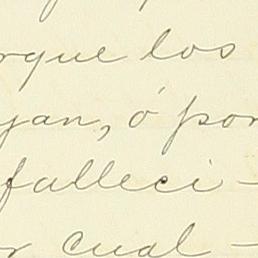 rque los
yan, ó por
falleci-
r cual-